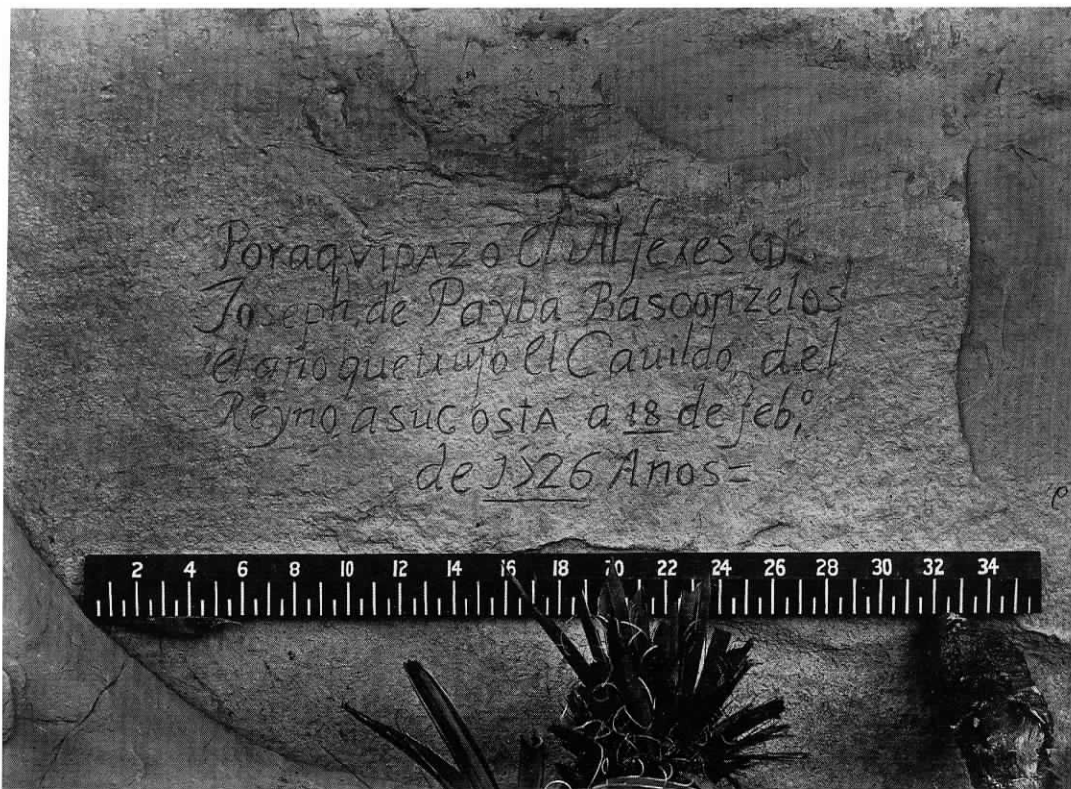 Por aqvi pAzo el Alferes Dⁿ
Joseph, de Payba Basconzelos
el año que trujo el Cauildo, del
Reyno, a su CostA, a 18 de feb.º
de 1726 Años=
2 4 6 8 10 12 14 16 18 20 22 24 26 28 30 32 34